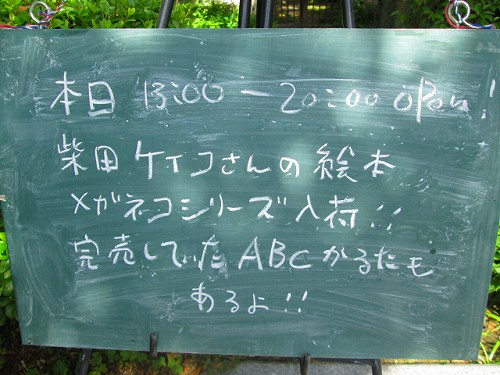 本日 13:00ー20:00 open!
柴田ケイコさんの絵本
メガネコシリーズ入荷!!
完売していたABCかるたも
あるよ!!